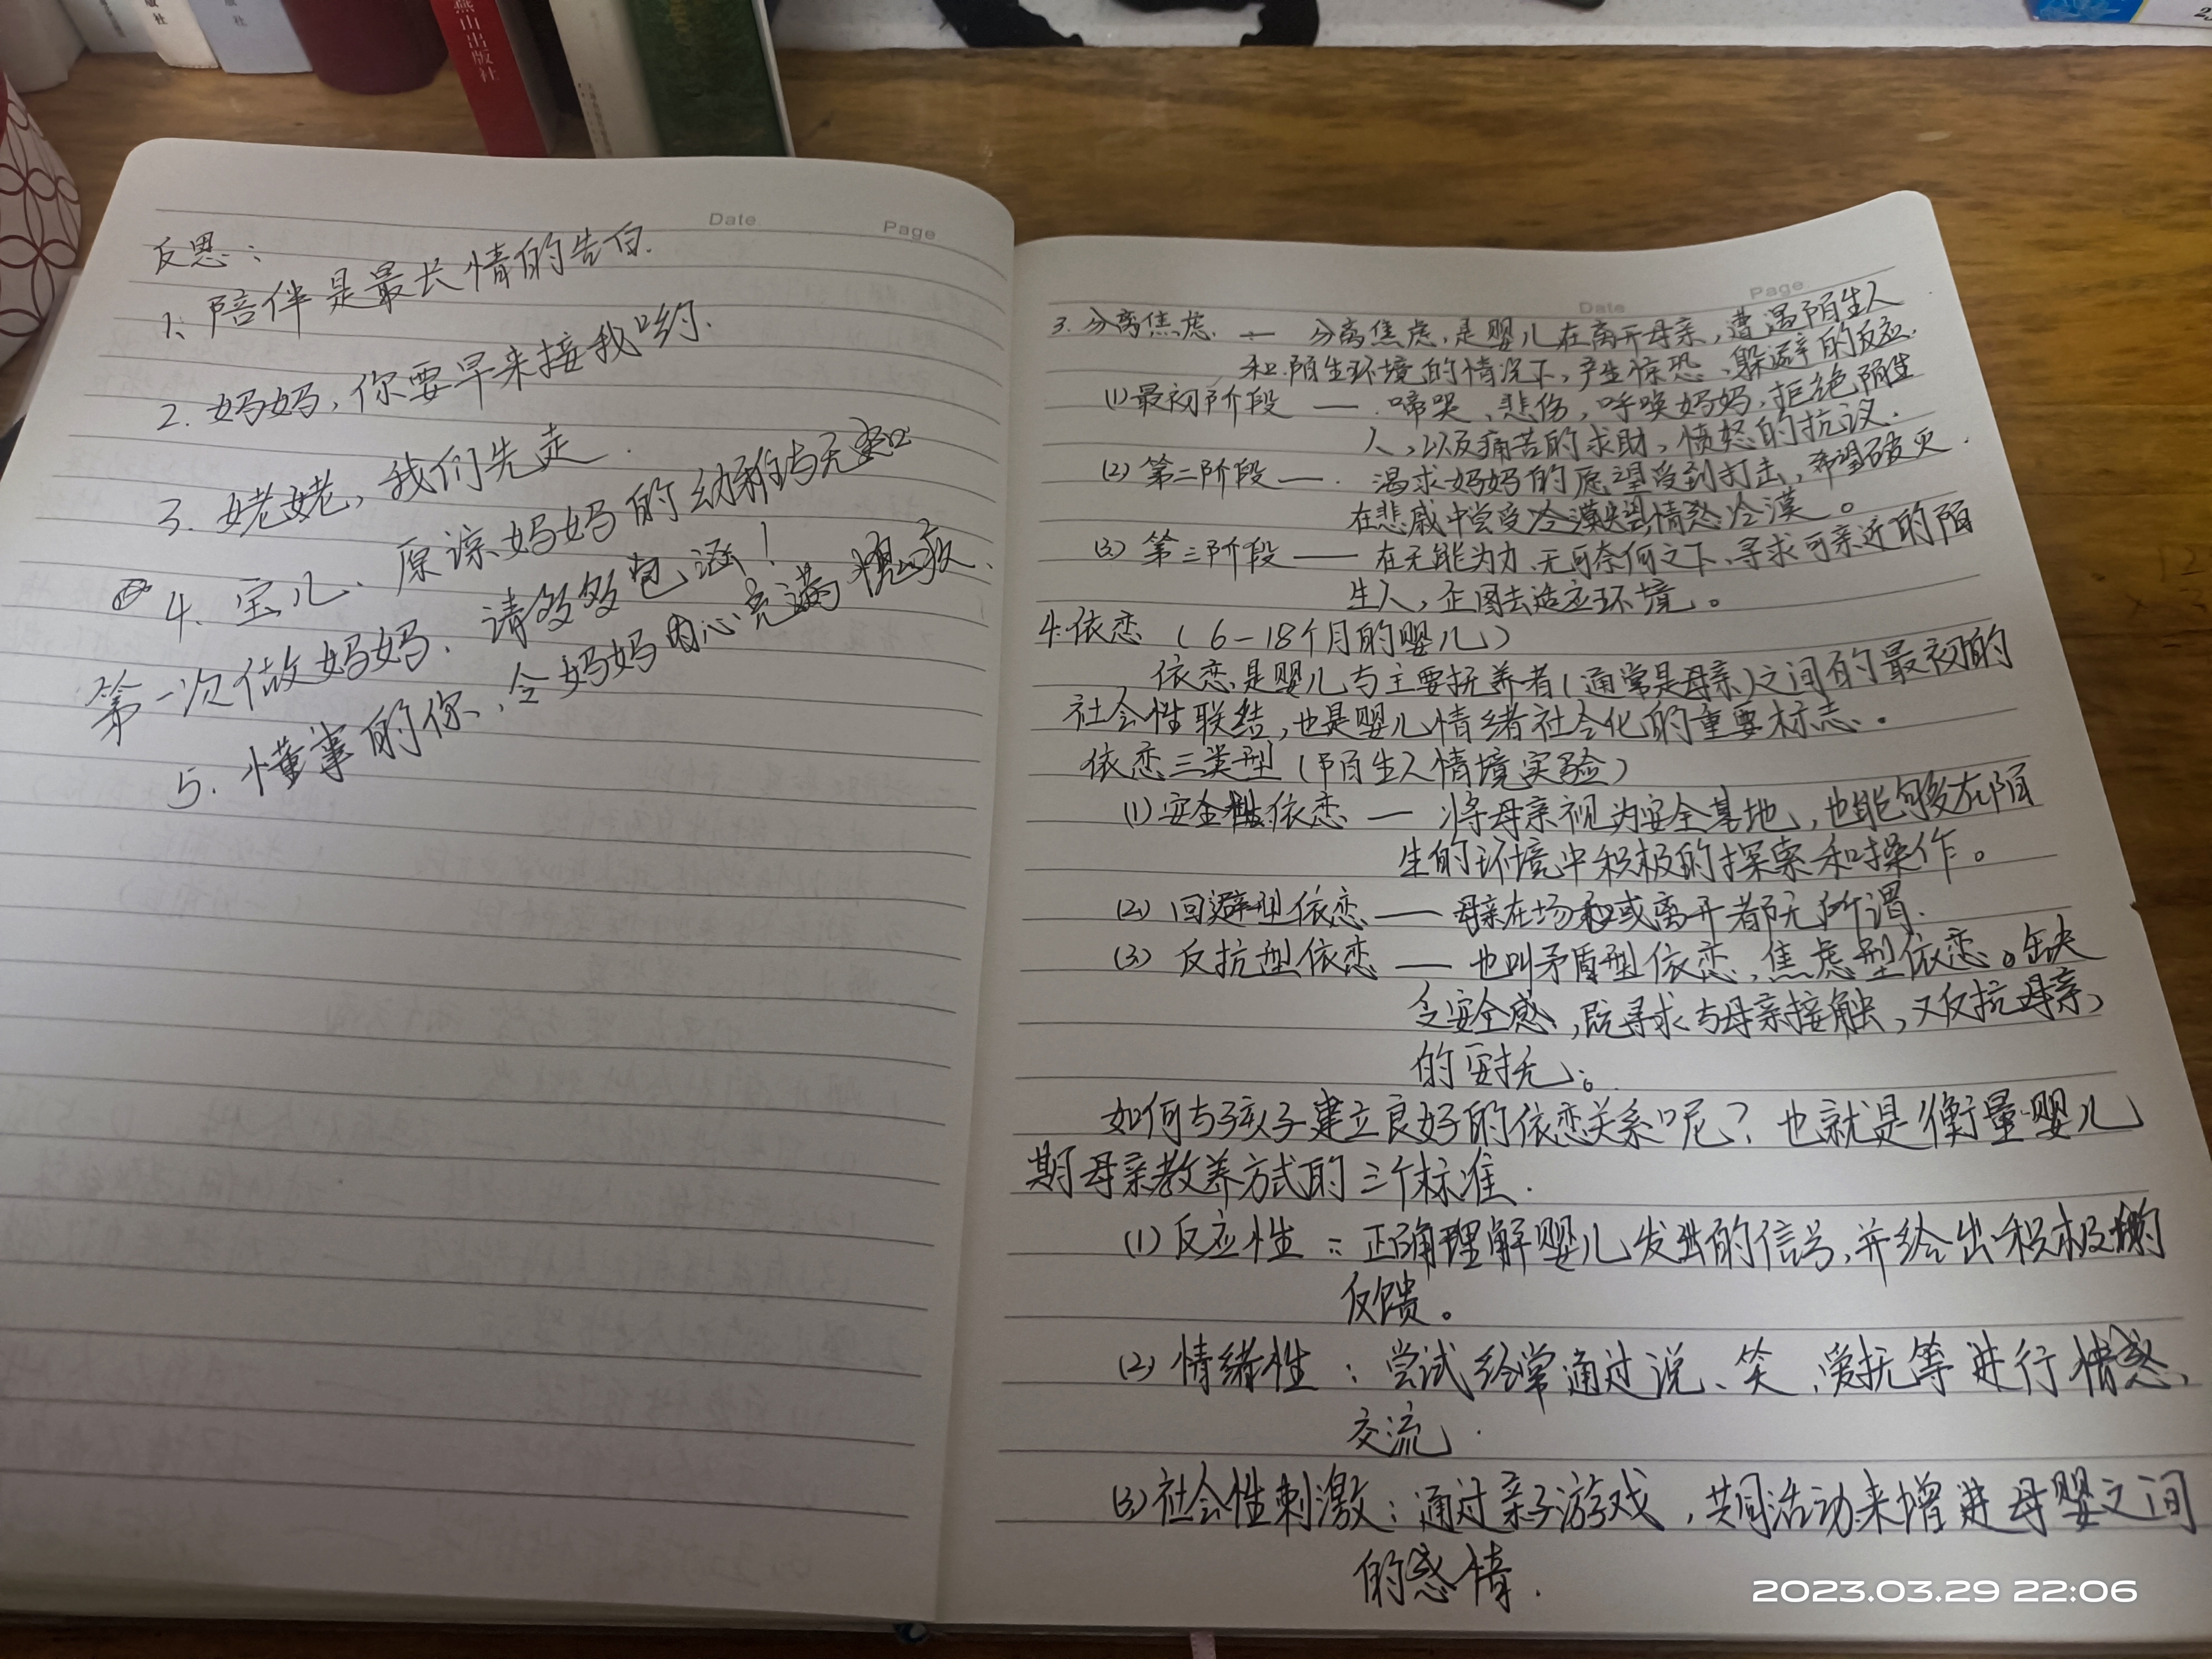 燕山出版社
版社
Date
Page
反思：
1、陪伴是最长情的告白.
2. 妈妈，你要早来接我哟.
3. 姥姥，我们先走.
4. 宝儿、原谅妈妈的幼稚与无知
第一次做妈妈、请多多包涵！
5. 懂事的你、令妈妈内心充满愧疚.
Date
Page
3. 分离焦虑 — 分离焦虑，是婴儿在离开母亲，遭遇陌生人
和陌生环境的情况下，产生惊恐、躲避的反应.
(1) 最初阶段 — 啼哭、悲伤，呼唤妈妈，拒绝陌生
人，以及痛苦的求助，愤怒的抗议.
(2) 第二阶段 — 渴求妈妈的愿望受到打击，希望破灭.
在悲戚中尝受冷漠 情感冷漠。
(3) 第三阶段 — 在无能为力、无可奈何之下、寻求可亲近的陌
生人，企图去适应环境。
4. 依恋（6-18个月的婴儿）
依恋是婴儿与主要抚养者（通常是母亲）之间的最初的
社会性联结，也是婴儿情绪社会化的重要标志.
依恋三类型（陌生人情境实验）
(1) 安全性依恋 — 将母亲视为安全基地，也能够在陌
生的环境中积极的探索和操作。
(2) 回避型依恋 — 母亲在场或离开都无所谓.
(3) 反抗型依恋 — 也叫矛盾型依恋，焦虑型依恋。缺
乏安全感，既寻求与母亲接触，又反抗母亲
的安抚。
如何与孩子建立良好的依恋关系呢？也就是衡量婴儿
期母亲教养方式的三个标准.
(1) 反应性：正确理解婴儿发出的信号，并给出积极的
反馈。
(2) 情绪性：尝试经常通过说、笑、爱抚等进行情感
交流.
(3) 社会性刺激：通过亲子游戏，共同活动来增进母婴之间
的感情.
2023.03.29 22:06